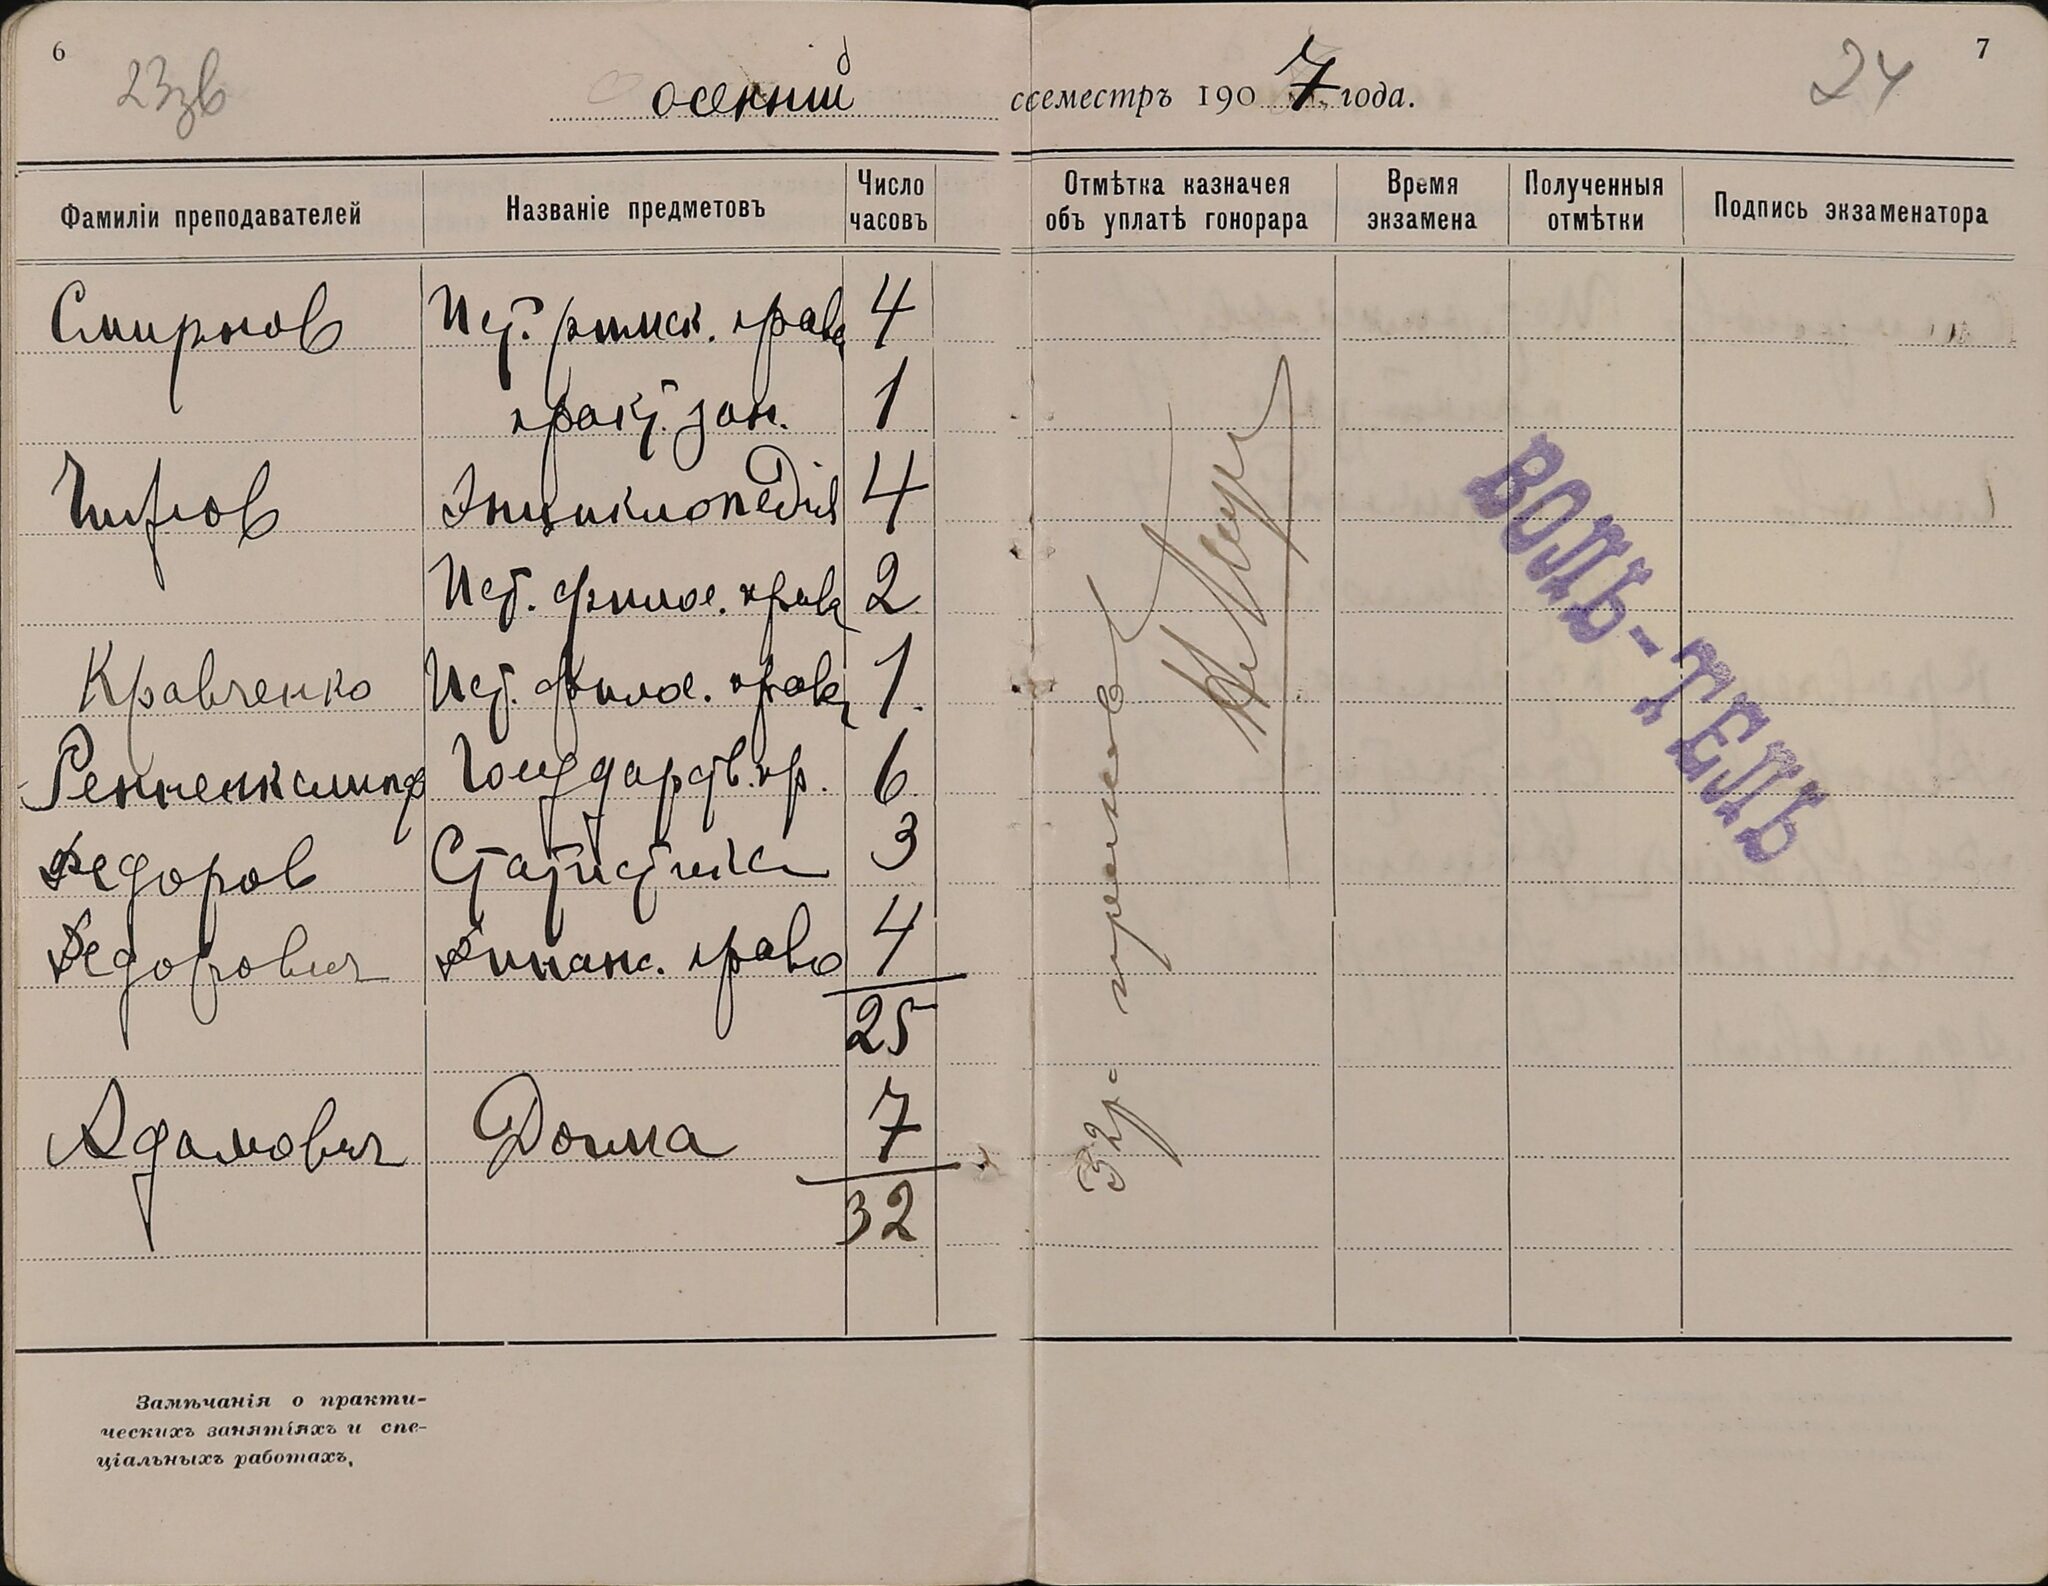 6
23зв
осенній
ссеместръ 1907 года.
24
7
Фамиліи преподавателей
Названіе предметовъ
Число часовъ
Отмѣтка казначея объ уплатѣ гонорара
Время экзамена
Полученныя отмѣтки
Подпись экзаменатора
Смирнов Ист. римск. права 4
практ. зан. 1
Чижов Энциклопедія 4
Ист. филос. права 2
Кравченко Ист. филос. права 1
Ренненкампф Государств. пр. 6
Федоров Статистика 3
Федорович Финанс. право 4
25
Адамович Догма 7
32
32р
ВОЛЬ-ТЕЛЬ
Замѣчанія о практи-
ческихъ занятіяхъ и спе-
ціальныхъ работахъ.